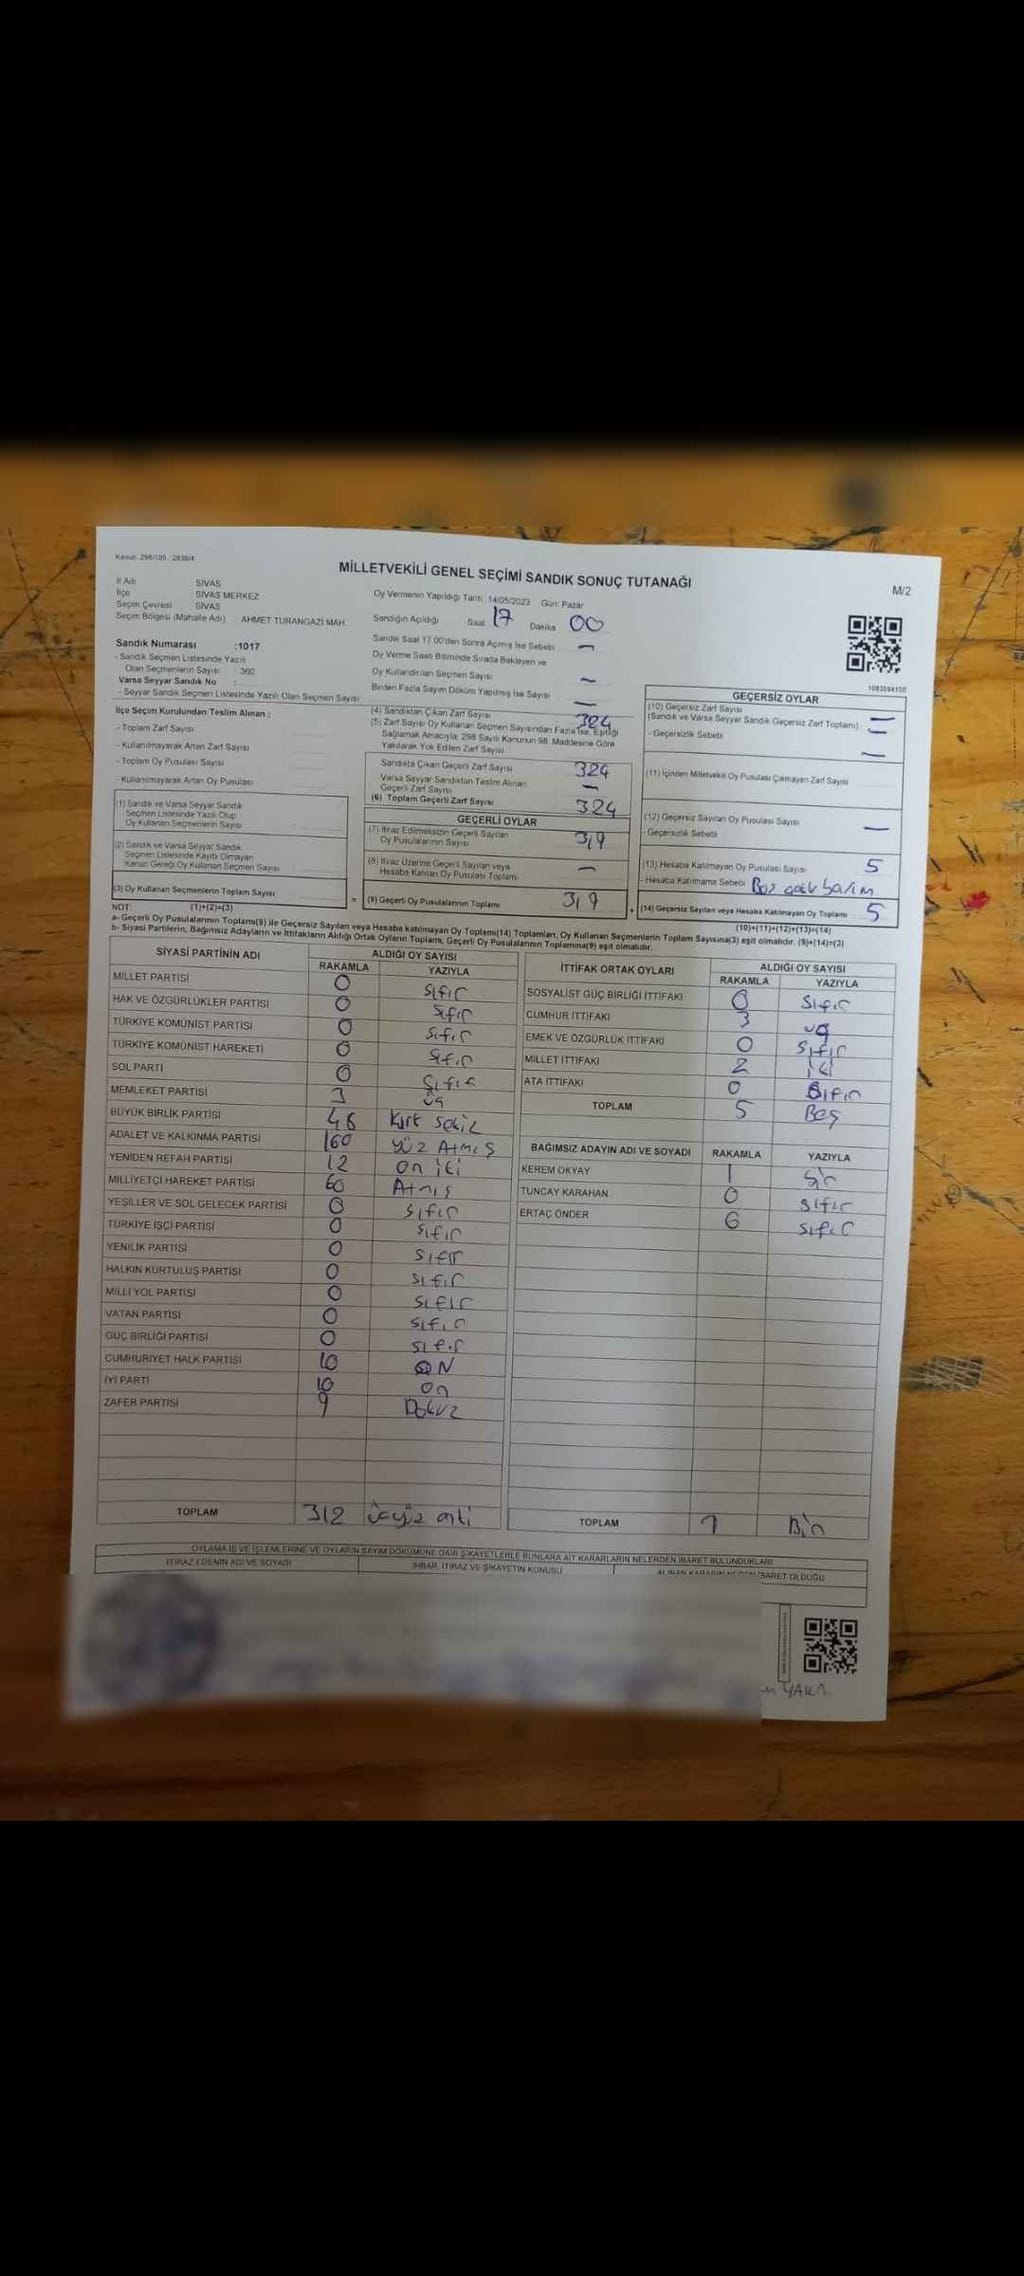 Kanun: 298/105, 2839/4
MİLLETVEKİLİ GENEL SEÇİMİ SANDIK SONUÇ TUTANAĞI
M/2
İl Adı SİVAS
İlçe SİVAS MERKEZ
Seçim Çevresi SİVAS
Seçim Bölgesi (Mahalle Adı) AHMET TURANGAZİ MAH.
Oy Vermenin Yapıldığı Tarih: 14/05/2023 Gün: Pazar
Sandığın Açıldığı Saat 17 Dakika 00
Sandık Saat 17.00'den Sonra Açılmış İse Sebebi -
Oy Verme Saati Bitiminde Sırada Bekleyen ve
Oy Kullandırılan Seçmen Sayısı -
Birden Fazla Sayım Döküm Yapılmış İse Sayısı -
Sandık Numarası :1017
- Sandık Seçmen Listesinde Yazılı
Olan Seçmenlerin Sayısı : 360
Varsa Seyyar Sandık No :
- Seyyar Sandık Seçmen Listesinde Yazılı Olan Seçmen Sayısı
İlçe Seçim Kurulundan Teslim Alınan :
- Toplam Zarf Sayısı
- Kullanılmayarak Artan Zarf Sayısı
- Toplam Oy Pusulası Sayısı
- Kullanılmayarak Artan Oy Pusulası
(1) Sandık ve Varsa Seyyar Sandık
Seçmen Listesinde Yazılı Olup
Oy Kullanan Seçmenlerin Sayısı
(2) Sandık ve Varsa Seyyar Sandık
Seçmen Listesinde Kayıtlı Olmayan
Kanun Gereği Oy Kullanan Seçmen Sayısı
(3) Oy Kullanan Seçmenlerin Toplam Sayısı
(4) Sandıktan Çıkan Zarf Sayısı 324
(5) Zarf Sayısı Oy Kullanan Seçmen Sayısından Fazla İse, Eşitliği
Sağlamak Amacıyla, 298 Sayılı Kanunun 98. Maddesine Göre
Yakılarak Yok Edilen Zarf Sayısı
Sandıkta Çıkan Geçerli Zarf Sayısı 324
Varsa Seyyar Sandıktan Teslim Alınan
Geçerli Zarf Sayısı -
(6) Toplam Geçerli Zarf Sayısı 324
GEÇERLİ OYLAR
(7) İtiraz Edilmeksizin Geçerli Sayılan
Oy Pusulalarının Sayısı 319
(8) İtiraz Üzerine Geçerli Sayılan veya
Hesaba Katılan Oy Pusulası Toplamı -
(9) Geçerli Oy Pusulalarının Toplamı 319
1083594150
GEÇERSİZ OYLAR
(10) Geçersiz Zarf Sayısı -
(Sandık ve Varsa Seyyar Sandık Geçersiz Zarf Toplamı) -
- Geçersizlik Sebebi -
(11) İçinden Milletvekili Oy Pusulası Çıkmayan Zarf Sayısı
(12) Geçersiz Sayılan Oy Pusulası Sayısı -
- Geçersizlik Sebebi
(13) Hesaba Katılmayan Oy Pusulası Sayısı 5
- Hesaba Katılmama Sebebi
(14) Geçersiz Sayılan veya Hesaba Katılmayan Oy Toplamı 5
NOT: (1)+(2)=(3) (10)+(11)+(12)+(13)=(14)
a- Geçerli Oy Pusulalarının Toplamı(9) ile Geçersiz Sayılan veya Hesaba katılmayan Oy Toplamı(14) Toplamları, Oy Kullanan Seçmenlerin Toplam Sayısına(3) eşit olmalıdır. (9)+(14)=(3)
b- Siyasi Partilerin, Bağımsız Adayların ve İttifakların Aldığı Ortak Oyların Toplamı, Geçerli Oy Pusulalarının Toplamına(9) eşit olmalıdır.
SİYASİ PARTİNİN ADI ALDIĞI OY SAYISI
RAKAMLA YAZIYLA
MİLLET PARTİSİ 0 sıfır
HAK VE ÖZGÜRLÜKLER PARTİSİ 0 sıfır
TÜRKİYE KOMÜNİST PARTİSİ 0 sıfır
TÜRKİYE KOMÜNİST HAREKETİ 0 sıfır
SOL PARTİ 0 sıfır
MEMLEKET PARTİSİ 3 üç
BÜYÜK BİRLİK PARTİSİ 48 Kırk sekiz
ADALET VE KALKINMA PARTİSİ 160 yüz Atmış
YENİDEN REFAH PARTİSİ 12 on iki
MİLLİYETÇİ HAREKET PARTİSİ 60 Atmış
YEŞİLLER VE SOL GELECEK PARTİSİ 0 sıfır
TÜRKİYE İŞÇİ PARTİSİ 0 sıfır
YENİLİK PARTİSİ 0 sıfır
HALKIN KURTULUŞ PARTİSİ 0 sıfır
MİLLİ YOL PARTİSİ 0 sıfır
VATAN PARTİSİ 0 sıfır
GÜÇ BİRLİĞİ PARTİSİ 0 sıfır
CUMHURİYET HALK PARTİSİ 10 ON
İYİ PARTİ 10 on
ZAFER PARTİSİ 9 Dokuz
TOPLAM 312 üçyüz oniki
İTTİFAK ORTAK OYLARI ALDIĞI OY SAYISI
RAKAMLA YAZIYLA
SOSYALİST GÜÇ BİRLİĞİ İTTİFAKI 0 sıfır
CUMHUR İTTİFAKI 3 üç
EMEK VE ÖZGÜRLÜK İTTİFAKI 0 sıfır
MİLLET İTTİFAKI 2 iki
ATA İTTİFAKI 0 sıfır
TOPLAM 5 Beş
BAĞIMSIZ ADAYIN ADI VE SOYADI RAKAMLA YAZIYLA
KEREM OKYAY 1 bir
TUNCAY KARAHAN 0 sıfır
ERTAÇ ÖNDER 0 sıfır
TOPLAM 1 Bir
OYLAMA İŞ VE İŞLEMLERİNE VE OYLARIN SAYIM DÖKÜMÜNE DAİR ŞİKAYETLERLE BUNLARA AİT KARARLARIN NELERDEN İBARET BULUNDUKLARI
İTİRAZ EDENİN ADI VE SOYADI
İHBAR, İTİRAZ VE ŞİKAYETİN KONUSU
ALINAN KARARIN NEDEN İBARET OLDUĞU